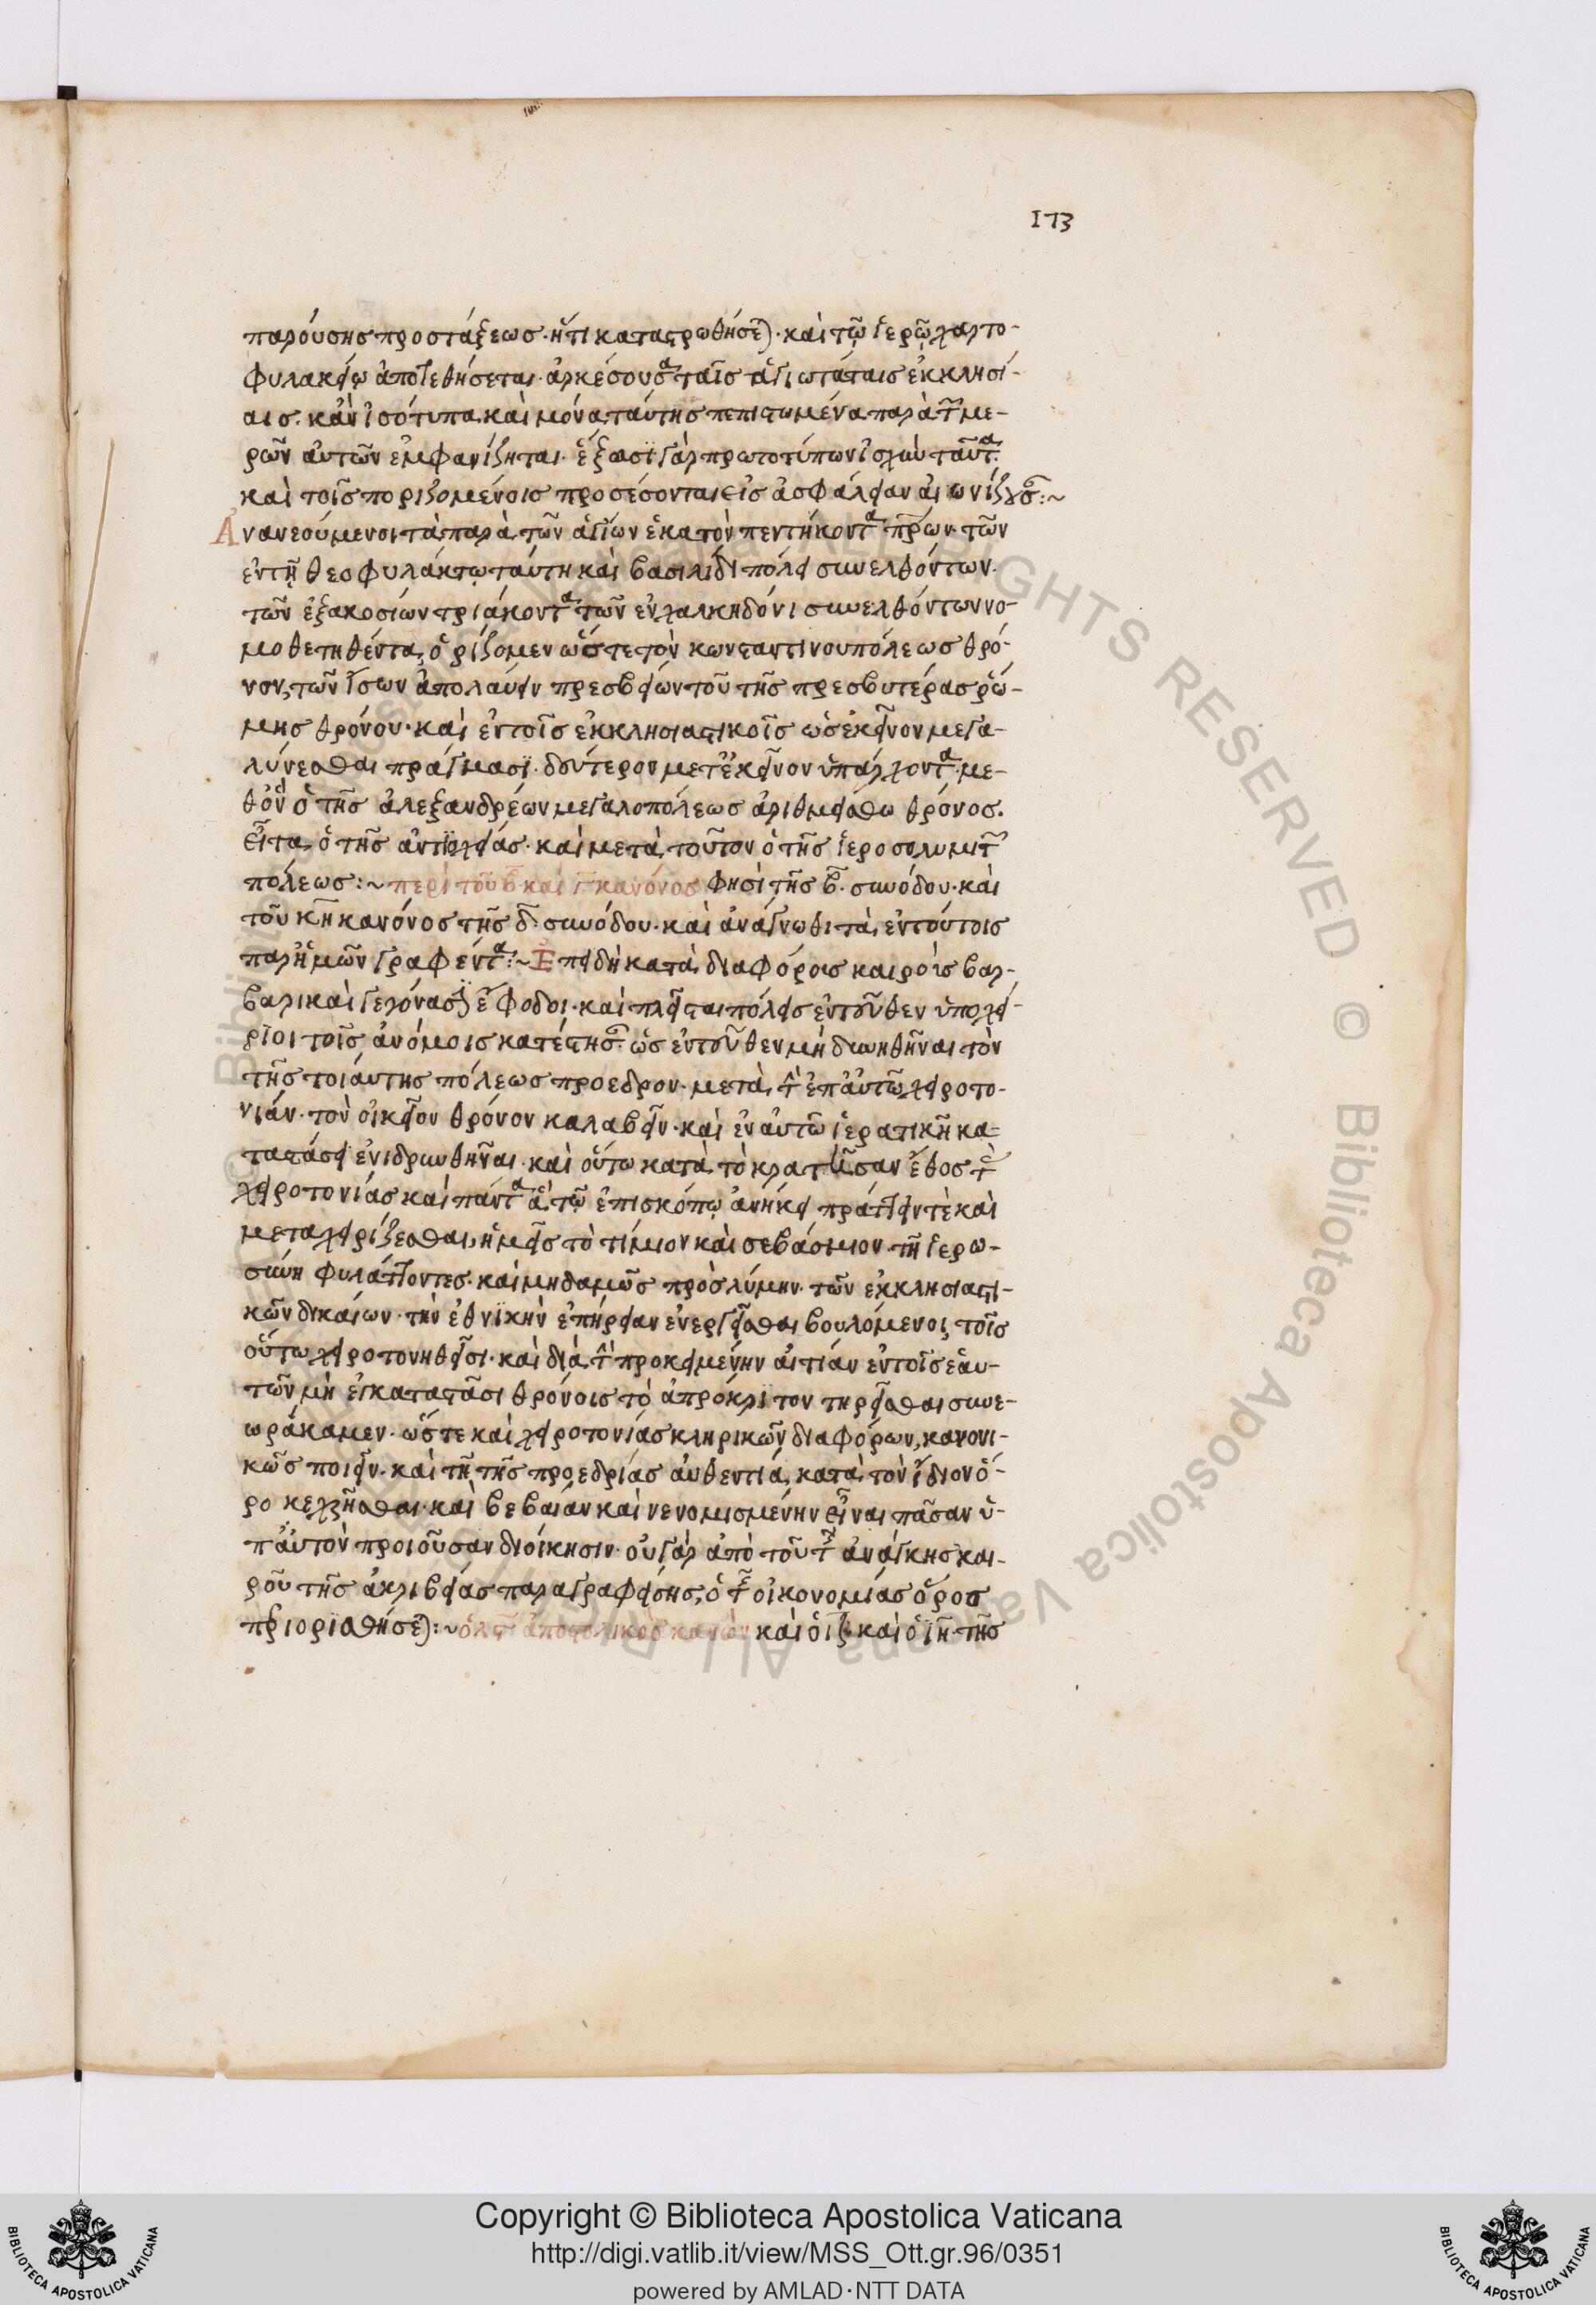 173
παρούσης προστάξεως· ἥτις καταστρωθήσεται· καὶ τῶ ἱερῶ χαρτο-
φυλακείω ἀποτεθήσεται· ἀρκέσουσα ταῖς ἁγιωτάταις ἐκκλησί-
αις· κἂν ἰσότυπα καὶ μόνα ταύτης πεπιστωμένα παρὰ τῶν με-
ρῶν αὐτῶν ἐμφανίζηται· ἕξωσι γὰρ πρωτοτύπων ἰσχὺν ταῦτα·
καὶ τοῖς ποριζομένοις προσέσονται εἰς ἀσφάλειαν αἰωνίζουσαν:~
Ἀνανεούμενοι τὰ παρὰ τῶν ἁγίων ἑκατὸν πεντήκοντα πρων· τῶν
ἐν τῆ θεοφυλάκτω ταύτη καὶ βασιλίδι πόλει συνελθόντων·
τῶν ἑξακοσίων τριάκοντα τῶν ἐν χαλκηδόνι συνελθόντων νο-
μοθετηθέντα, ὁρίζομεν ὥστε τὸν κωνσταντινουπόλεως θρό-
νον, τῶν ἴσων ἀπολαύειν πρεσβείων τοῦ τῆς πρεσβυτέρας ῥώ-
μης θρόνου· καὶ ἐν τοῖς ἐκκλησιαστικοῖς ὡς ἐκεῖνον μεγα-
λύνεσθαι πράγμασι· δεύτερον μετ' ἐκεῖνον ὑπάρχοντα· με-
θ' ὃν ὁ τῆς ἀλεξανδρέων μεγαλοπόλεως ἀριθμείσθω θρόνος·
εἶτα ὁ τῆς ἀντιοχείας· καὶ μετὰ τοῦτον ὁ τῆς ἱεροσολυμιτῶν
πόλεως:~ περὶ τοῦ β καὶ γ κανόνος φησὶ τῆς β· συνόδου· καὶ
τοῦ κη κανόνος τῆς δ· συνόδου· καὶ ἀνάγνωθι τὰ ἐν τούτοις
παρ' ἡμῶν γραφέντα:~ Ἐπειδὴ κατὰ διαφόροις καιροῖς βαρ-
βαρικαὶ γεγόνασιν ἔφοδοι· καὶ πλεῖσται πόλεις ἐντεῦθεν ὑποχεί-
ριοι τοῖς ἀνόμοις κατέστησαν· ὡς ἐντεῦθεν μὴ δυνηθῆναι τὸν
τῆς τοιαύτης πόλεως πρόεδρον· μετὰ τὴν ἐπ' αὐτῶ χειροτο-
νίαν· τὸν οἰκεῖον θρόνον καλαβεῖν· καὶ ἐν αὐτῶ ἱερατικῆ κα-
ταστάσει ἐνιδρυνθῆναι· καὶ οὕτω κατὰ τὸ κρατῆσαν ἔθος τὰς
χειροτονίας καὶ πάντα ἃ τῶ ἐπισκόπω ἀνήκει πράττειν τὲ καὶ
μεταχειρίζεσθαι, ἡμεῖς τὸ τίμιον καὶ σεβάσμιον τῆ ἱερω-
σύνη φυλάττοντες· καὶ μηδαμῶς πρὸς λύμην· τῶν ἐκκλησιαστι-
κῶν δικαίων· τὴν ἐθνικὴν ἐπήρειαν ἐνεργεῖσθαι βουλόμενοι, τοῖς
οὕτω χειροτονηθεῖσι· καὶ διὰ τὴν προκειμένην αἰτίαν ἐν τοῖς ἑαυ-
τῶν μὴ εἰκαταστᾶσι θρόνοις τὸ ἀπρόκριτον τηρεῖσθαι συνε-
ωράκαμεν· ὥστε καὶ χειροτονίας κληρικῶν διαφόρων, κανονι-
κῶς ποιεῖν· καὶ τῆ τῆς προεδρίας αὐθεντία, κατὰ τὸν ἴδιον ὅ-
ρο κεχρῆσθαι· καὶ βεβαίαν καὶ νενομισμένην εἶναι πᾶσαν ὑ-
π' αὐτὸν προιοῦσαν διοίκησιν· οὐ γὰρ ἀπὸ τοῦ τῆς ἀνάγκης και-
ροῦ τῆς ἀκριβείας παραγραφείσης, ὁ τῆς οἰκονομίας ὅρος
περιορισθήσεται:~ ὁ λς ἀποστολικὸς κανὼν καὶ ὁ ιζ· καὶ ὁ ιη· τῆς
Copyright © Biblioteca Apostolica Vaticana
http://digi.vatlib.it/view/MSS_Ott.gr.96/0351
powered by AMLAD·NTT DATA
BIBLIOTECA APOSTOLICA VATICANA
BIBLIOTECA APOSTOLICA VATICANA